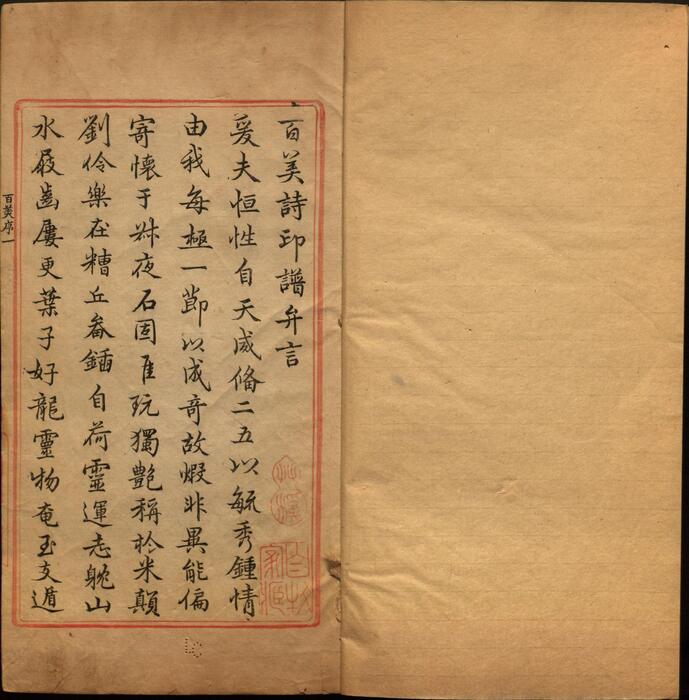 百美詩印譜弁言
爰夫恒性自天咸俻二五以毓秀鍾情
由我每極一節以成奇故嘏非異能偏
寄懷于夜石固隹玩獨艶稱扵米顛
劉伶樂在糟丘畚鍤自荷靈運志躭山
水屐齒屢更葉子好龍靈物奄至支遁
百美序一